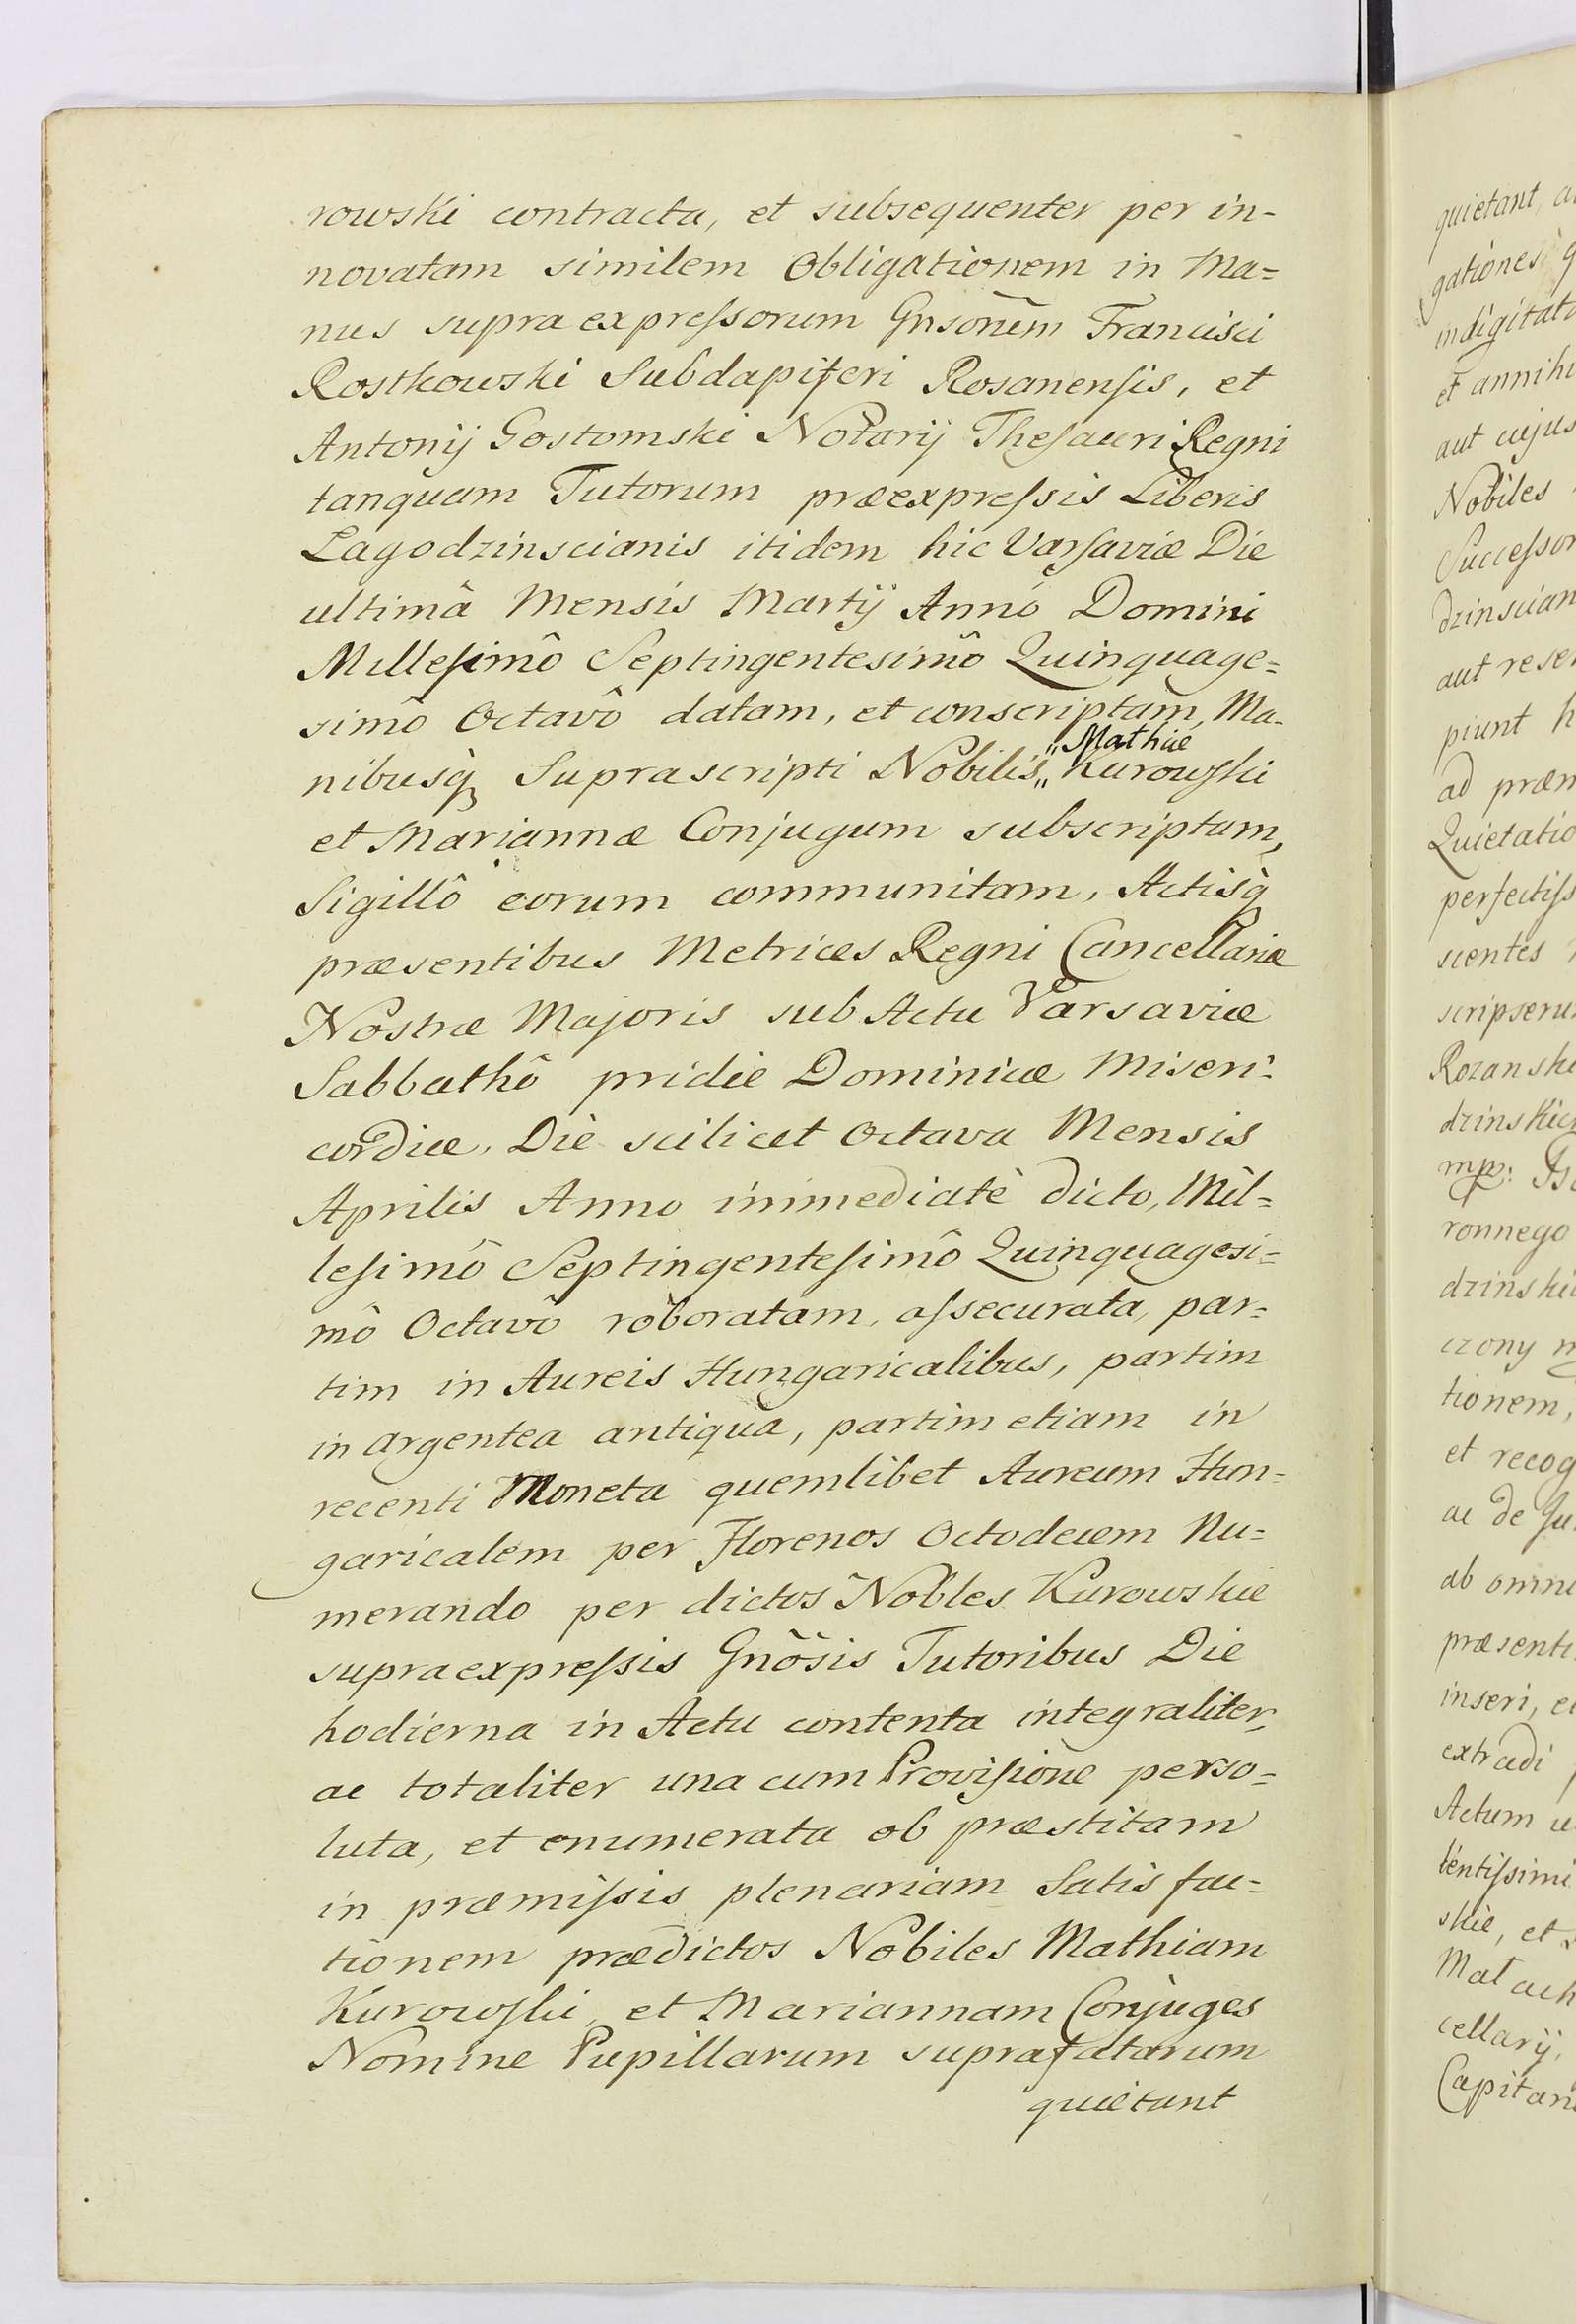 rowski contracta, et subsequenter per in-
novatam similem Obligationem in Ma=
nus supra expreſsorum Gnsorum Francisci
Rostkowski Subdapiferi Rosanenſis, et
Antonij Gostomski Notarij Theſauri Regni
tanquam Tutorum præexpreſsis Liberis
Lagodzinscianis itidem hic Varſaviæ Die
ultimâ Mensis Martij Annô Domini
Milleſimô Septingentesimô Quinquage=
simô Octavô datam, et conscriptam, Ma-
nibusq́ Suprascripti Nobilis „Mathiæ„ Kurowſki
et Mariannæ Conjugum subscriptam,
Sigillô eorum communitam, Actisq́
præsentibus Metrices Regni Cancellariæ
Nostræ Majoris sub Actu Varsaviæ
Sabbathô pridie Dominicæ Miseri-
cordiæ, Die scilicet Octava Mensis
Aprilis Anno immediatè dicto, Mil=
leſimô Septingenteſimô Quinquagesi=
mô Octavô roboratam, aſsecurata, par=
tim in Aureis Hungaricalibus, partim
in argentea antiqua, partim etiam in
recenti Moneta quemlibet Aureum Hun=
garicalem per Florenos Octodecem Nu=
merando per dictos Nobles Kurowskie
supraexpreſsis Gnôsis Tutoribus Die
hodierna in Actu contenta integraliter,
ac totaliter una cum Proviſione perso=
luta, et enumerata ob præstitam
in præmiſsis plenariam Satisfac=
tionem prædictos Nobiles Mathiam
Kurowſki, et Mariannam Conjuges
Nomine Pupillarum suprafatarum
quietant
quietant, a
gationes q
indigitat
et annihi
aut cujus
Nobiles
Succeſsor
dzinscian
aut reser
piunt h
ad præm
Quietatio
perfectiſs
scentes
scripseru
Rozanski
dzinskic
mp:
ronnego
dzinski
czony
tionem,
et recog
ac de
ab omni
præsenti
inseri, e
extradi
Actum
lentiſsimi
skie, et
Mat
cellarij,
Capitan